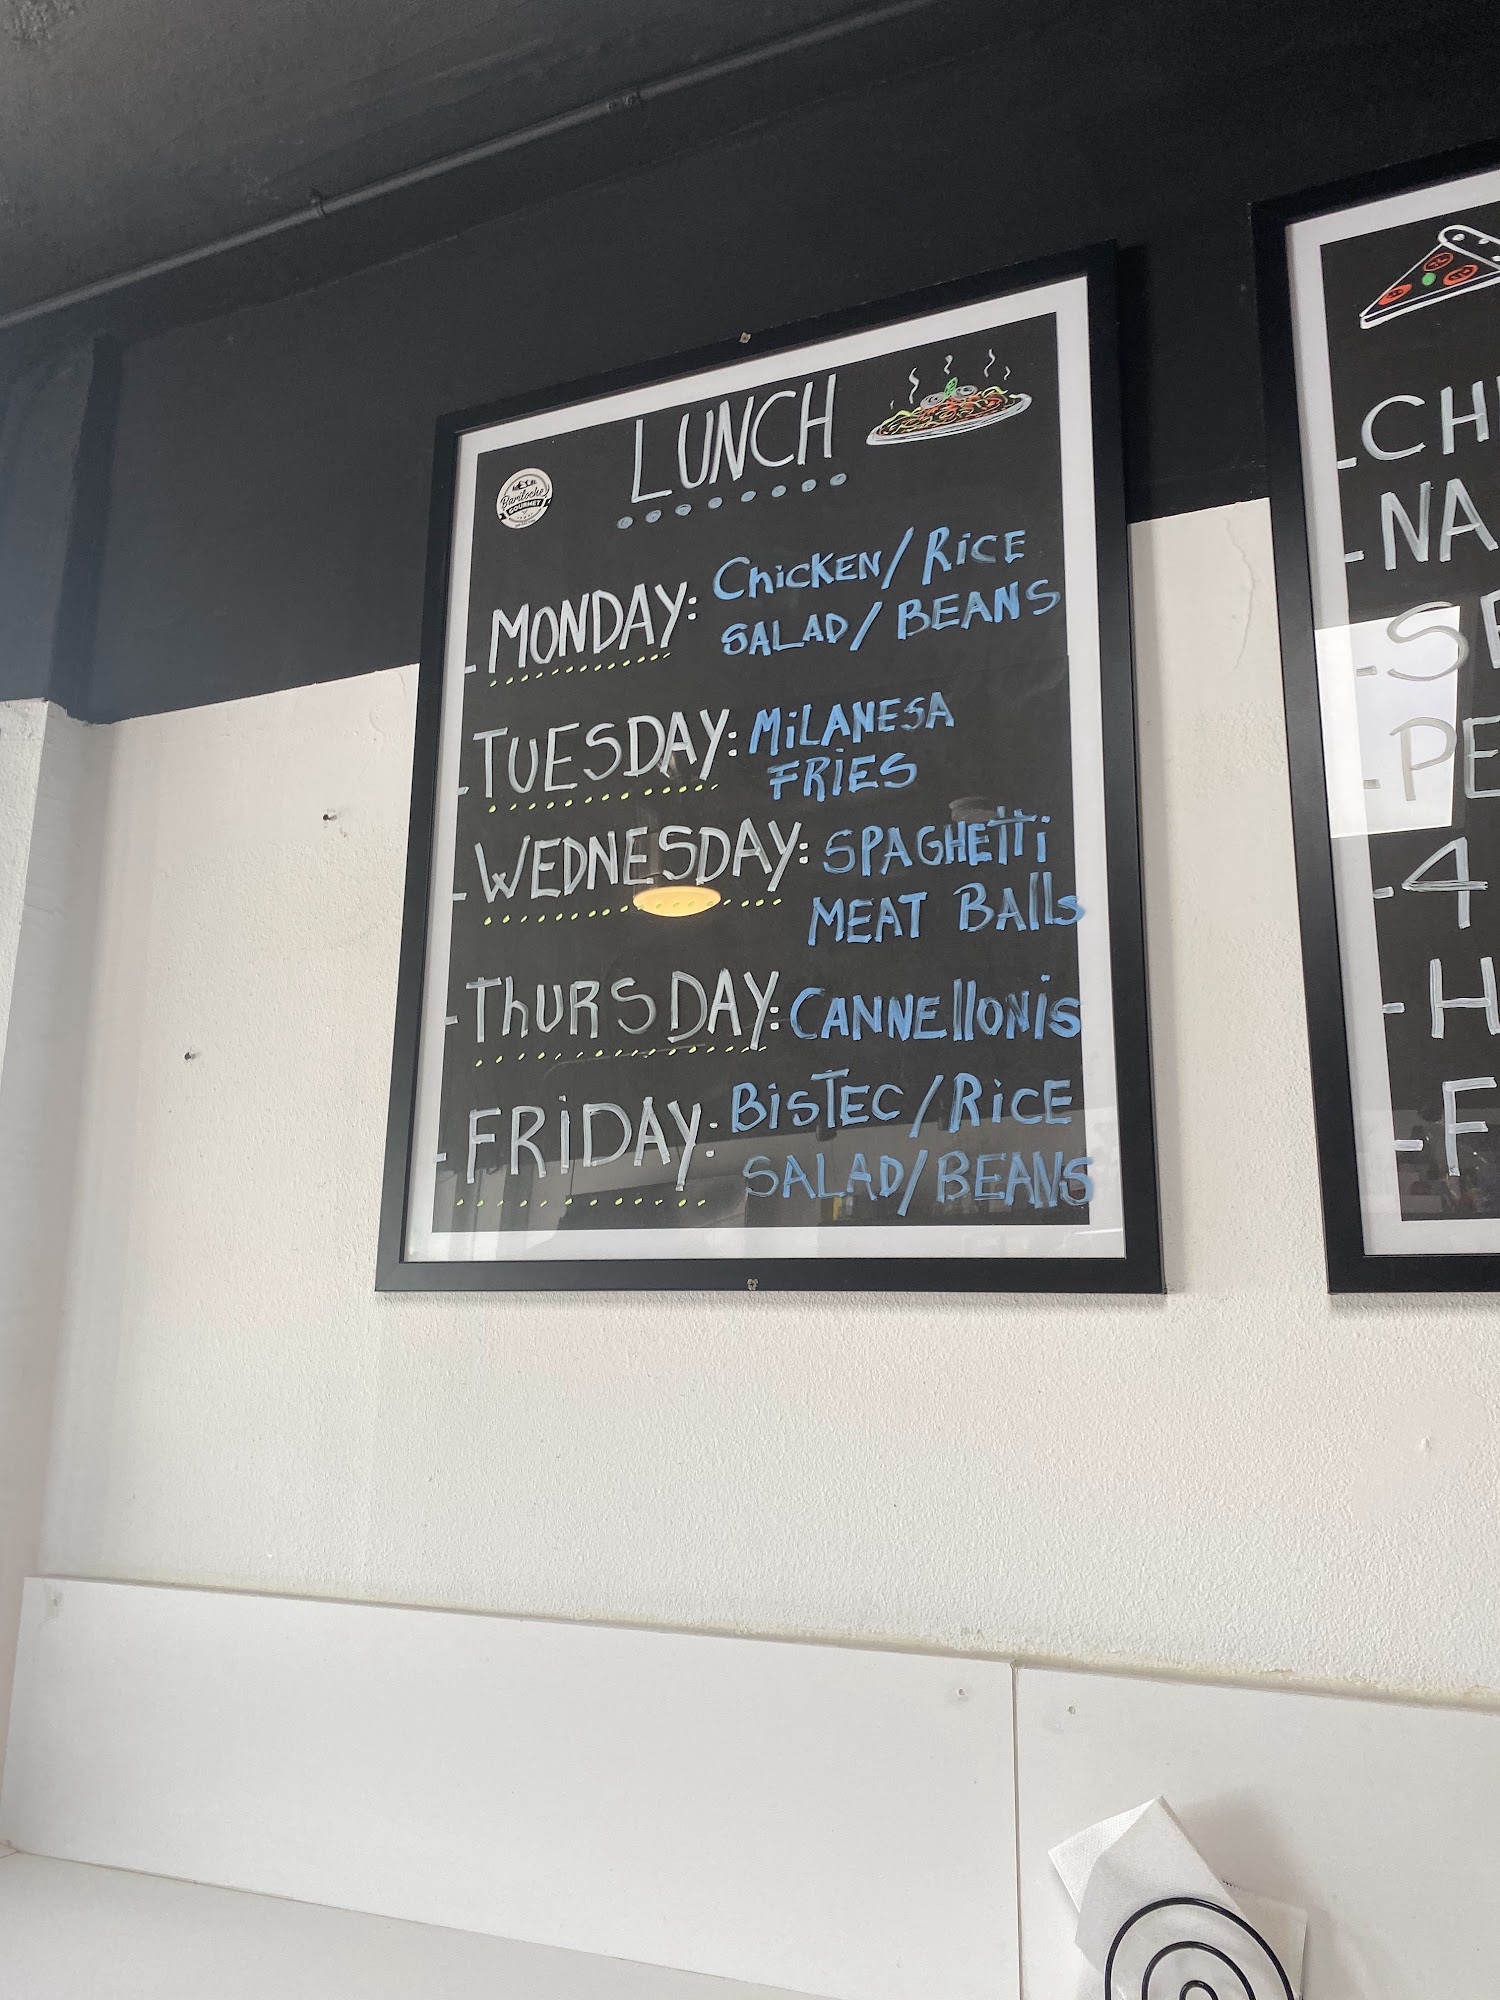 LUNCH
Bariloche
GOURMET
- MONDAY: Chicken/Rice
SALAD/BEANS
- TUESDAY: MiLANESA
FRiES
- WEDNESDAY: SPAGHETTi
MEAT BAlls
- ThURSDAY: CANNEllONiS
- FRiDAY: BiSTEC/RiCE
SALAD/BEANS
- CH
- NA
- SE
- PE
- 4
- H
- F